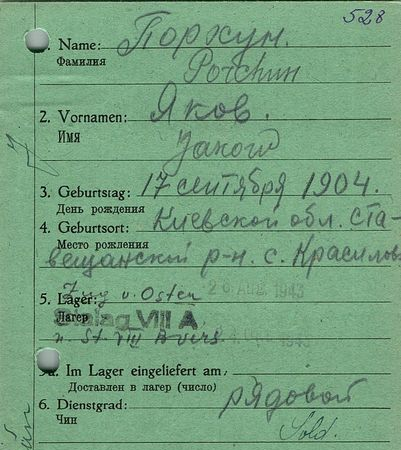 528
1. Name: Порхун.
Фамилия
Porchun
2. Vornamen: Яков.
Имя
Jakow
3. Geburtstag: 17 сентября 1904.
День рождения
4. Geburtsort: Киевской обл. Ста-
Место рождения
вещанский р-н. с. Красилов
5. Lager: Zug v. Osten 20 AUG. 1943
Лагер
Stalag VIII A
n. St. VIII B vers.
5a. Im Lager eingeliefert am
Доставлен в лагер (число)
6. Dienstgrad: рядовой
Чин
Sold.